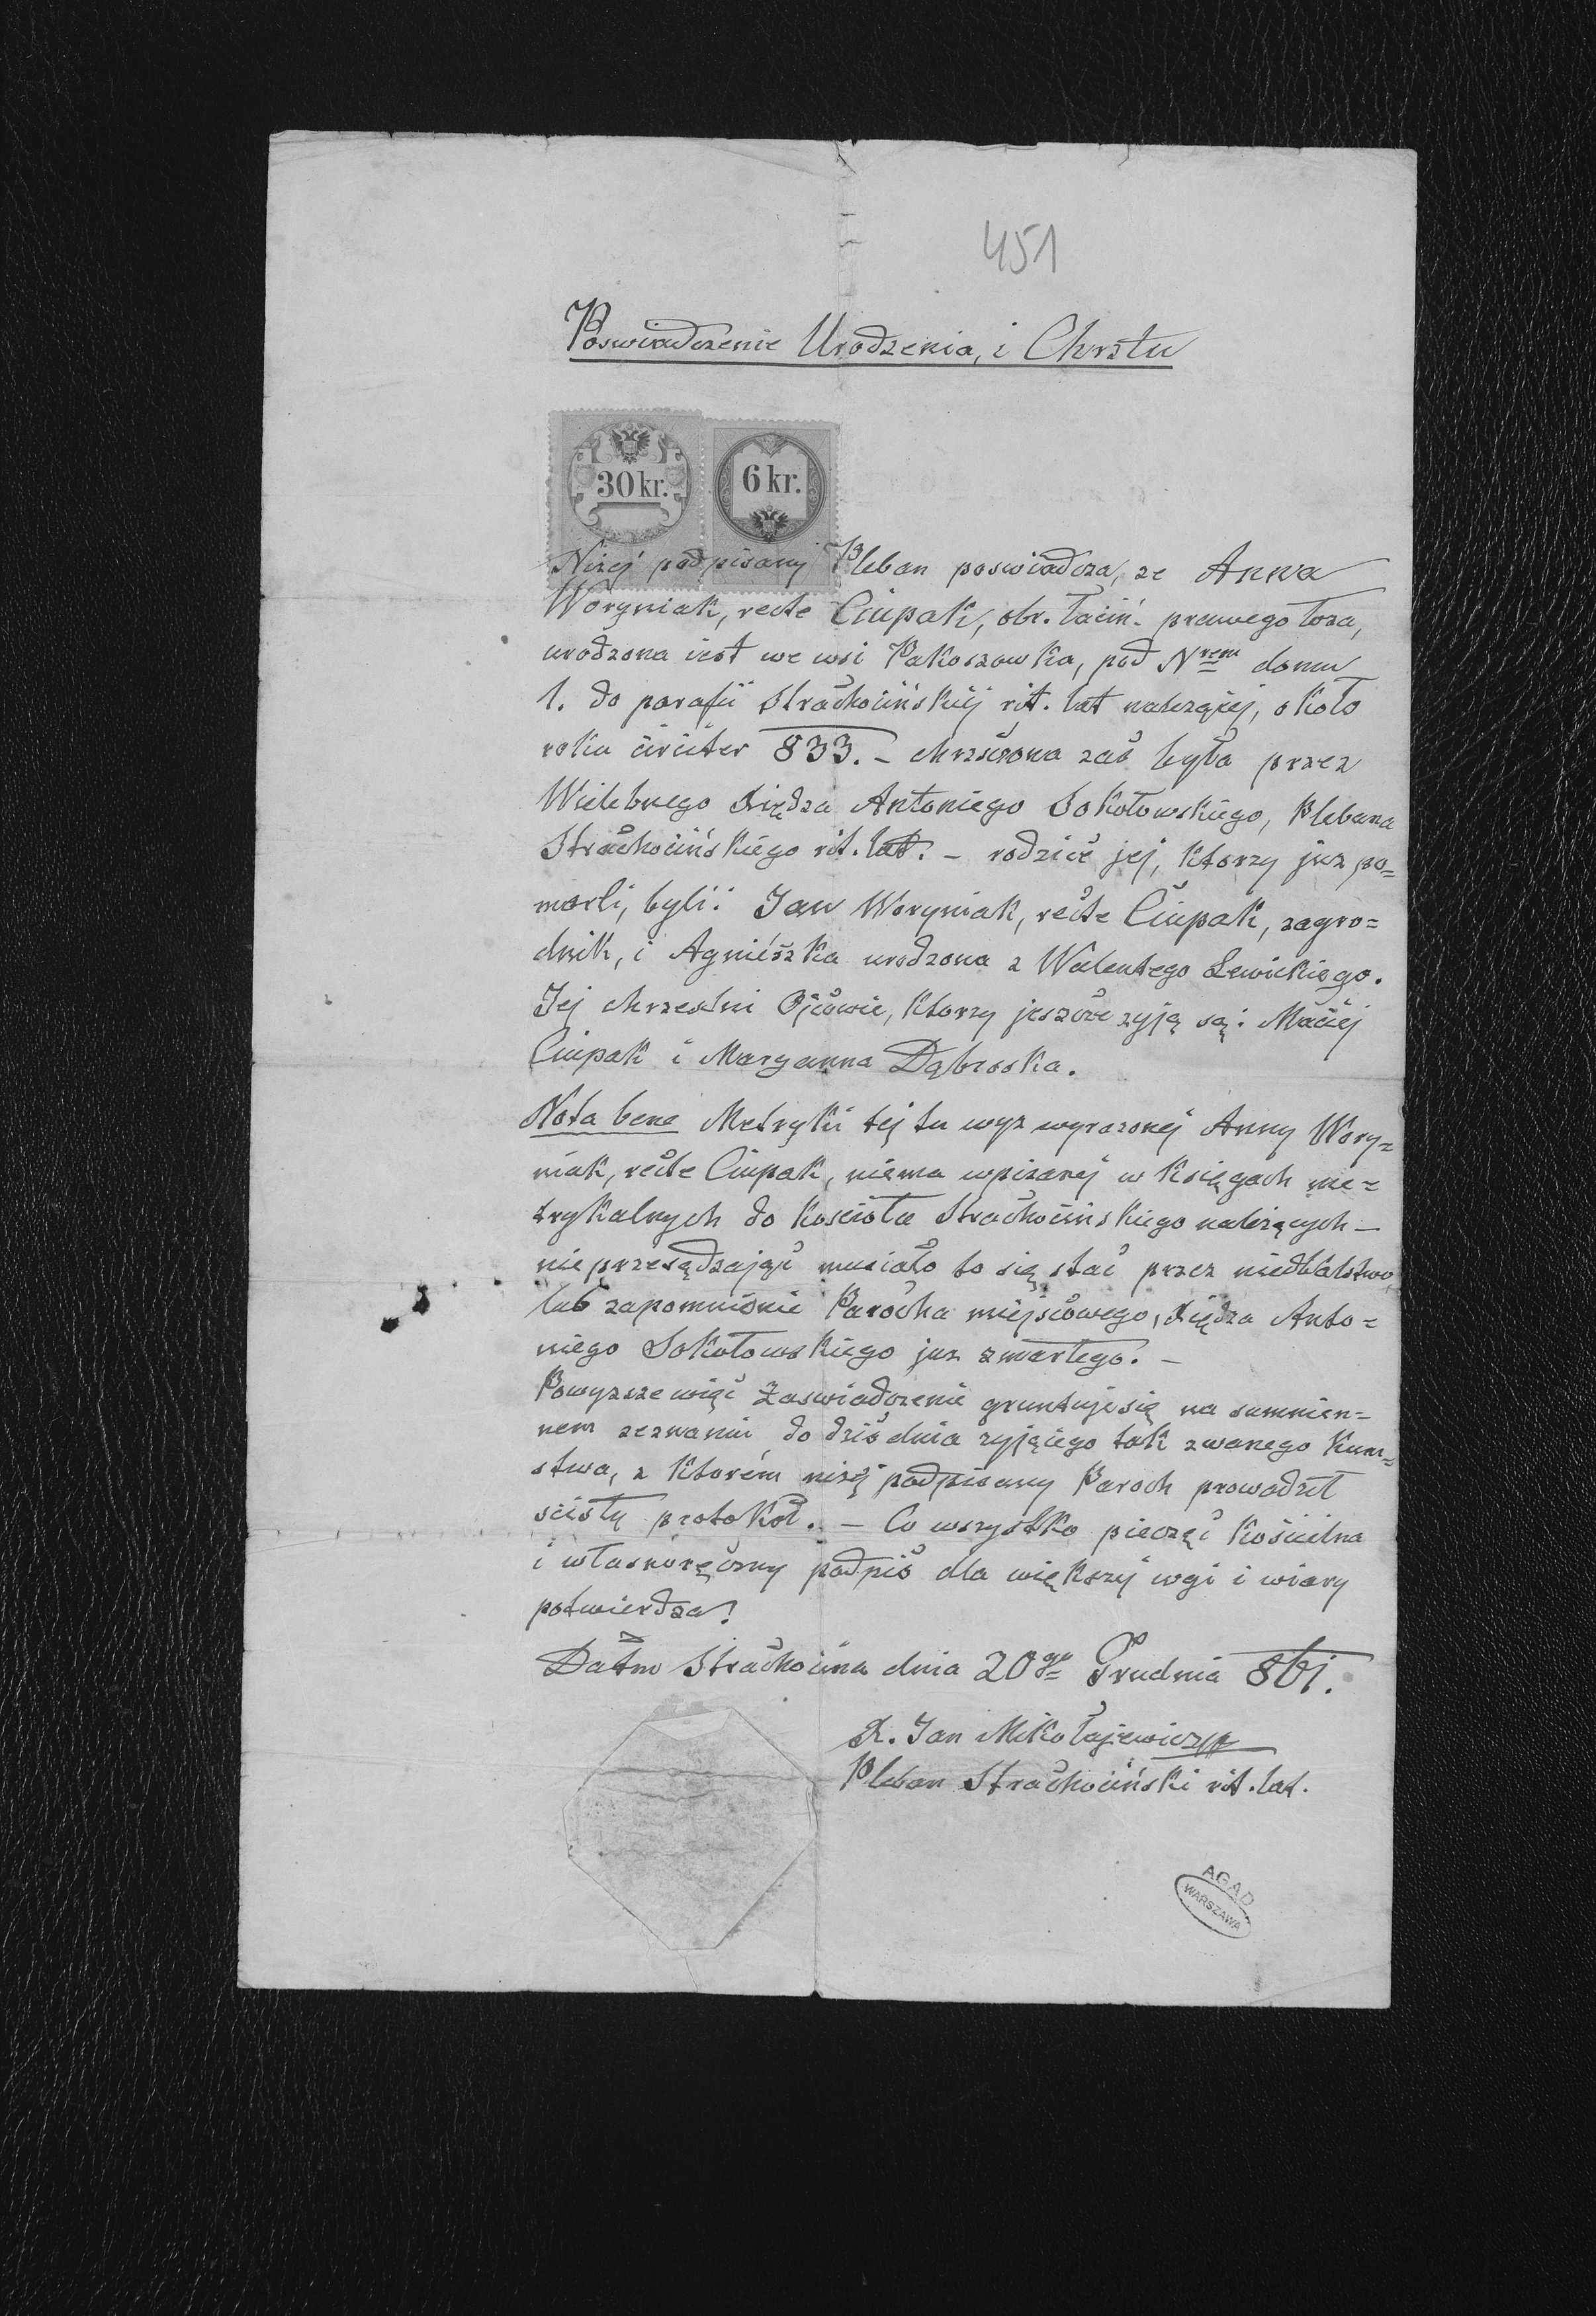 451
Poswiadczenie Urodzenia, i Chrztu
30 kr.
6 kr.
Niżej podpisany Pleban poswiadcza, ze Anna
Woryniak, recte Ciupak, obr. łaciń. prawego łoza,
urodzona iest we wsi Pakoszowka, pod Nrem domu
1. do parafii Strachocińskiej rit. lat nalezącej, około
roku circiter 833. – chrzszczona zaś była przez
Wielebnego Xiędza Antoniego Sokołowskiego, Plebana
Strachocińskiego rit. lat. – rodzice jej, ktorzy juz po=
marli, byli: Jan Woryniak, recte Ciupak, zagro=
dnik, i Agnieszka urodzona z Walentego Lewickiego.
Jej chrzestni Ojcowie, ktorzy jeszcze zyją są: Maciej
Ciupak i Maryanna Dąbrosska.
Nota bene Metryki tej tu wyz wyrazonej Anny Wory=
niak, recte Ciupak, niema wpisanej w Księgach me=
trykalnych do Kosciola Strachocinskiego nalezących –
nieprzesądzając musiało to się stać przez niedbalstwo,
lub zapomnienie Parocha miejscowego, Xiędza Anto=
niego Sokołowskiego juz zmarłego. –
Powyzsze więc Zaswiadczenie gruntuje się na sumnien=
nem zeznaniu do dziś dnia zyjącego tak zwanego Kum=
stwa, z ktorém niżej podpisany Paroch prowadził
scisły protokoł. – Co wszystko pieczęć Kościelna
i własnoręczny podpis dla większej wgi i wiary
potwierdza!
Datm Strachocina dnia 20go Grudnia 861.
X. Jan Mikołajewicz
Pleban Strachociński rit. lat.
AGAD
WARSZAWA